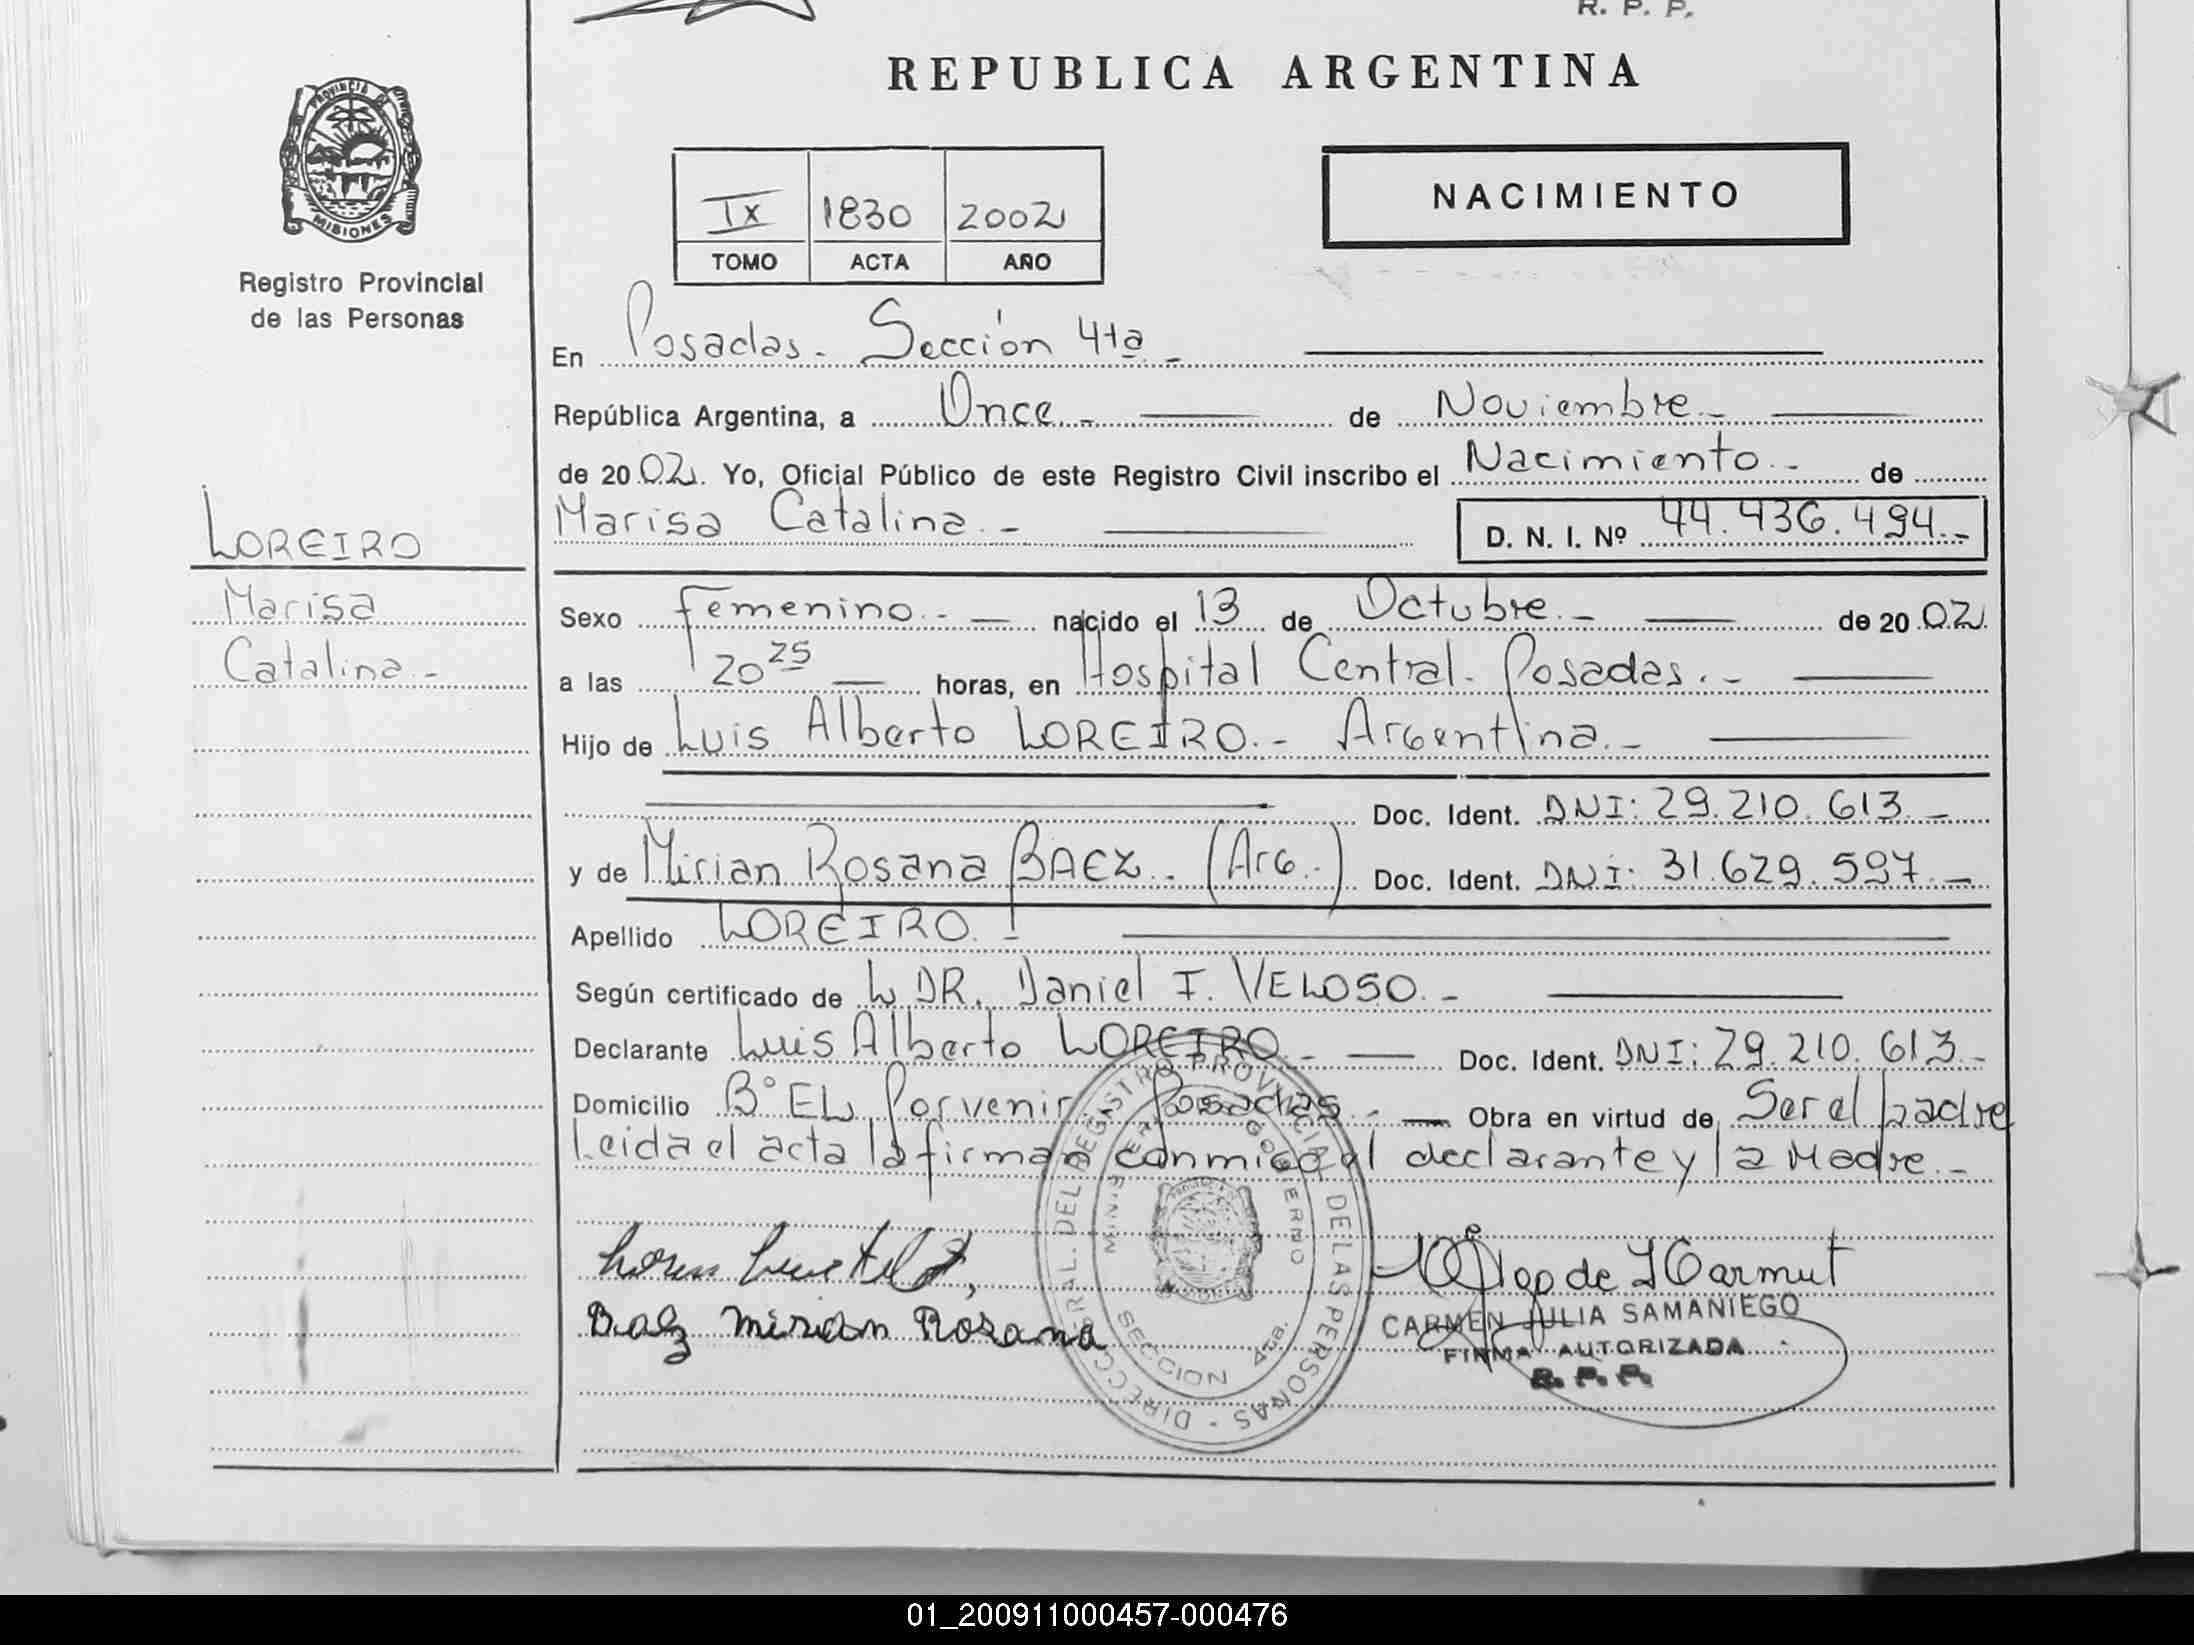 R. P. P.
REPUBLICA ARGENTINA
PROVINCIA DE
MISIONES
Registro Provincial
de las Personas
IX 1830 2002
TOMO ACTA AÑO
NACIMIENTO
En Posadas.- Sección 4ta.-
República Argentina, a Once.- de Noviembre.-
de 2002. Yo, Oficial Público de este Registro Civil inscribo el Nacimiento.- de
Marisa Catalina.- D. N. I. Nº 44.436.494.-
LOREIRO
Marisa
Catalina.-
Sexo Femenino.- nacido el 13 de Octubre.- de 2002.
a las 20 25 horas, en Hospital Central. Posadas.-
Hijo de Luis Alberto LOREIRO.- Argentina.-
Doc. Ident. DNI: 29.210.613.-
y de Mirian Rosana BAEZ.. (Arg.-) Doc. Ident. DNI: 31.629.597.-
Apellido LOREIRO.-
Según certificado de L DR. Daniel I. VELOSO.-
Declarante Luis Alberto LOREIRO.- Doc. Ident. DNI: 29.210.613.-
Domicilio Bº EL Porvenir. Posadas.- Obra en virtud de Ser el padre
Leida el acta la firman conmigo el declarante y la Madre.-
DIRECC GRAL. DEL REGISTRO PROVINCIAL DE LAS PERSONAS -
MINISTERIO DE GOBIERNO
SECCION 4ta.
Baez Mirian Rosana
CARMEN JULIA SAMANIEGO
FIRMA AUTORIZADA
R. P. P.
01_200911000457-000476